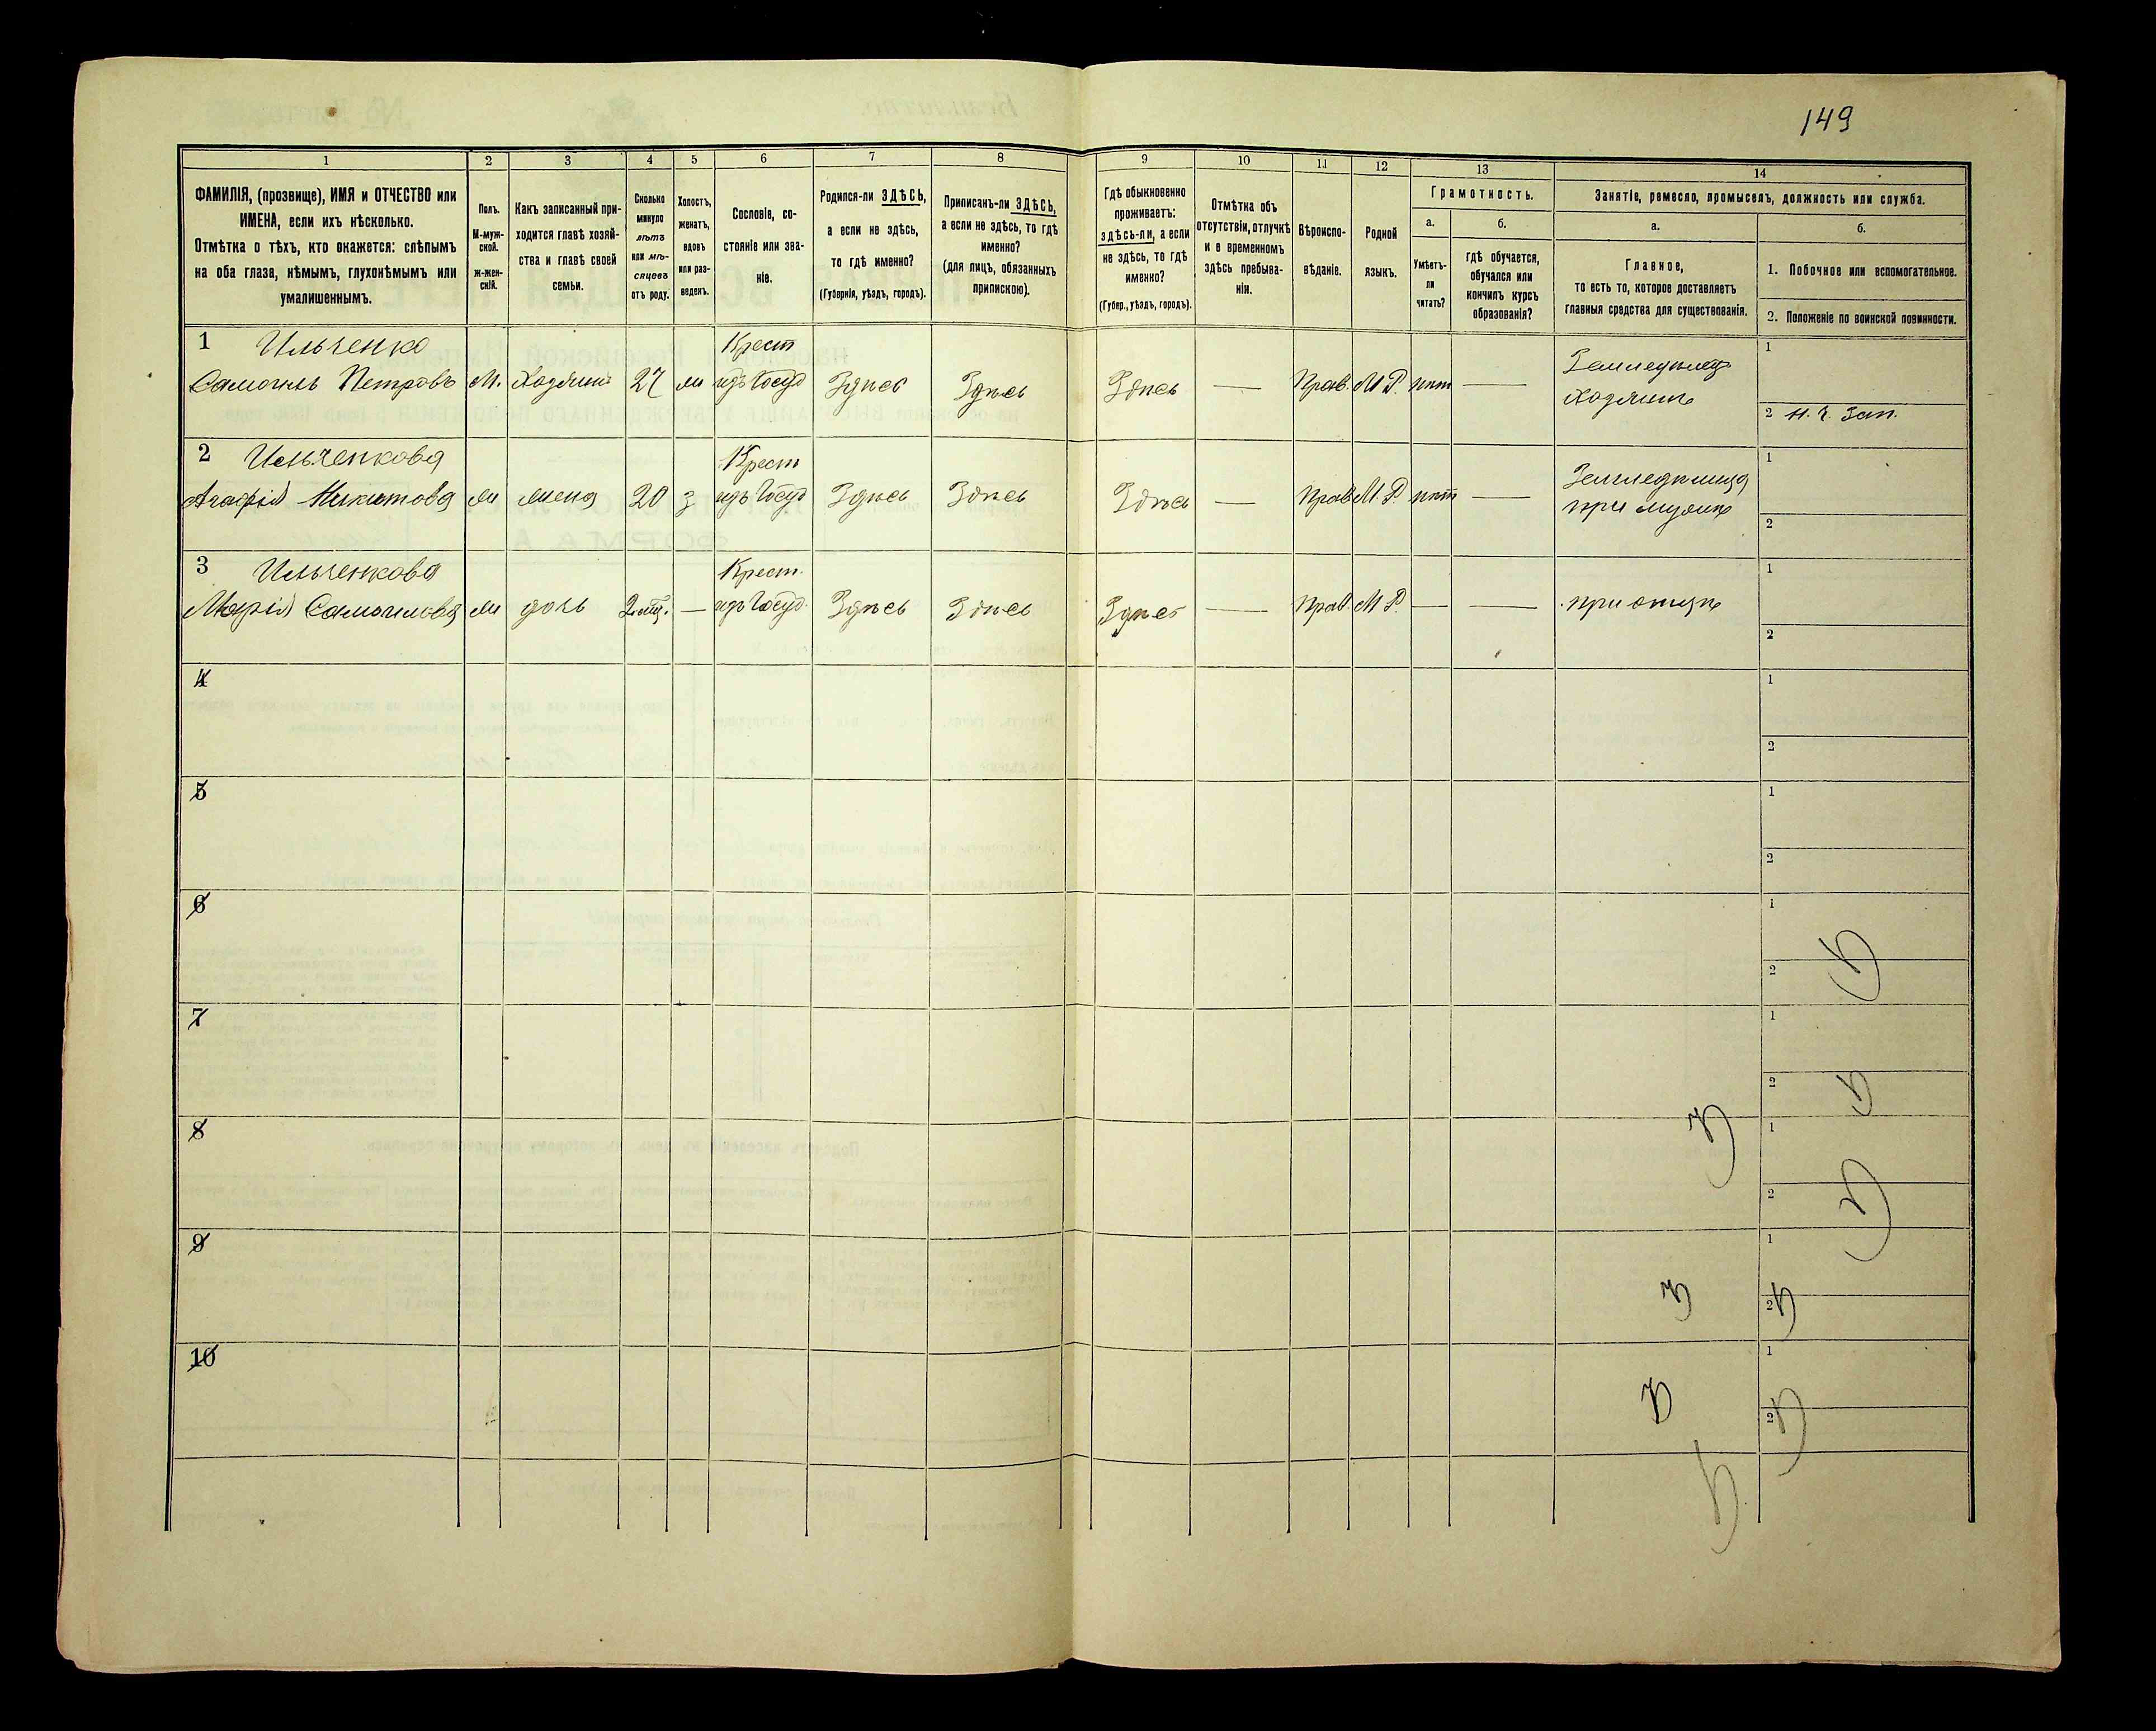 149
1 2 3 4 5 6 7 8 9 10 11 12 13 14
ФАМИЛІЯ, (прозвище), ИМЯ и ОТЧЕСТВО или
ИМЕНА, если ихъ нѣсколько.
Отмѣтка о тѣхъ, кто окажется: слѣпымъ
на оба глаза, нѣмымъ, глухонѣмымъ или
умалишеннымъ.
Полъ.
М-муж-
ской.
ж-жен-
скій.
Какъ записанный при-
ходится главѣ хозяй-
ства и главѣ своей
семьи.
Сколько
минуло
лѣтъ
или мѣ-
сяцевъ
отъ роду.
Холостъ,
женатъ,
вдовъ
или раз-
веденъ.
Сословіе, со-
стояніе или зва-
ніе.
Родился-ли ЗДѢСЬ,
а если не здѣсь,
то гдѣ именно?
(Губернія, уѣздъ, городъ).
Приписанъ-ли ЗДѢСЬ,
а если не здѣсь, то гдѣ
именно?
(для лицъ, обязанныхъ
припискою).
Гдѣ обыкновенно
проживаетъ:
здѣсь-ли, а если
не здѣсь, то гдѣ
именно?
(Губер., уѣздъ, городъ).
Отмѣтка объ
отсутствіи, отлучкѣ
и о временномъ
здѣсь пребыва-
ніи.
Вѣроиспо-
вѣданіе.
Родной
языкъ.
Грамотность.
а.
Умѣетъ-
ли
читать?
б.
гдѣ обучается,
обучался или
кончилъ курсъ
образованія?
Занятіе, ремесло, промыселъ, должность или служба.
а.
Главное,
то есть то, которое доставляетъ
главныя средства для существованія.
б.
1. Побочное или вспомогательное.
2. Положеніе по воинской повинности.
1 Ильченко Крест Земледѣлец 1
Самоилъ Петровъ М. Хозяинъ 27 ж изъ Госуд Здѣсь Здѣсь Здѣсь — Прав. М Р. нѣт — Хозяинъ 2 Н. Ч. Зап.
2 Ильченкова Крест Земледѣлица 1
Агафія Никитова ж жена 20 з изъ Госуд Здѣсь Здѣсь Здѣсь — Прав М Р. нѣт — при мужѣ 2
3 Ильченкова Крест. 1
Марія Самоилова ж дочь 2 мѣс. — изъ Госуд. Здѣсь Здѣсь Здѣсь — Прав. М Р. — — при отцѣ 2
4 1
2
5 1
2
6 1
2
7 1
2
8 1
2
9 1
2
10 1
2